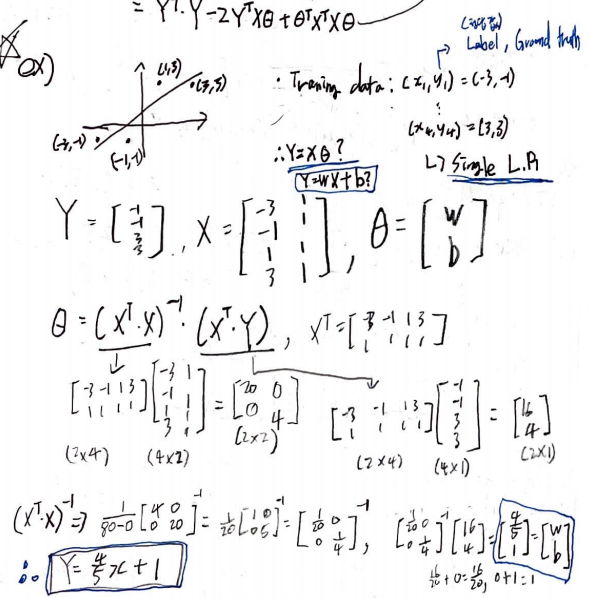 = Yᵀ·Y - 2YᵀXθ + θᵀXᵀXθ
Label, Ground truth
☆ ex)
(1,3) (3,3)
(-3,-1) (-1,-1)
· Traning data : (x₁, y₁) = (-3,-1)
⋮
(x₄, y₄) = (3,3)
∴ Y = Xθ ?
Y = wX + b?
↳ Single L.R
Y = [-1 -1 3 3], X = [-3 1; -1 1; 1 1; 3 1], θ = [w b]
θ = (Xᵀ·X)⁻¹·(Xᵀ·Y), Xᵀ = [-3 -1 1 3; 1 1 1 1]
[-3 -1 1 3; 1 1 1 1] [-3 1; -1 1; 1 1; 3 1] = [20 0; 0 4]
(2x4) (4x2) (2x2)
[-3 -1 1 3; 1 1 1 1] [-1 -1 3 3] = [16 4]
(2x4) (4x1) (2x1)
(Xᵀ·X)⁻¹ ⇒ 1/80-0 [4 0; 0 20]⁻¹ = 1/20 [1 0; 0 5]⁻¹ = [1/20 0; 0 1/4]⁻¹, [1/20 0; 0 1/4]⁻¹ [16 4] = [4/5 1] = [w b]
16/20 + 0 = 16/20, 0+1=1
∴ Y = 4/5 x + 1